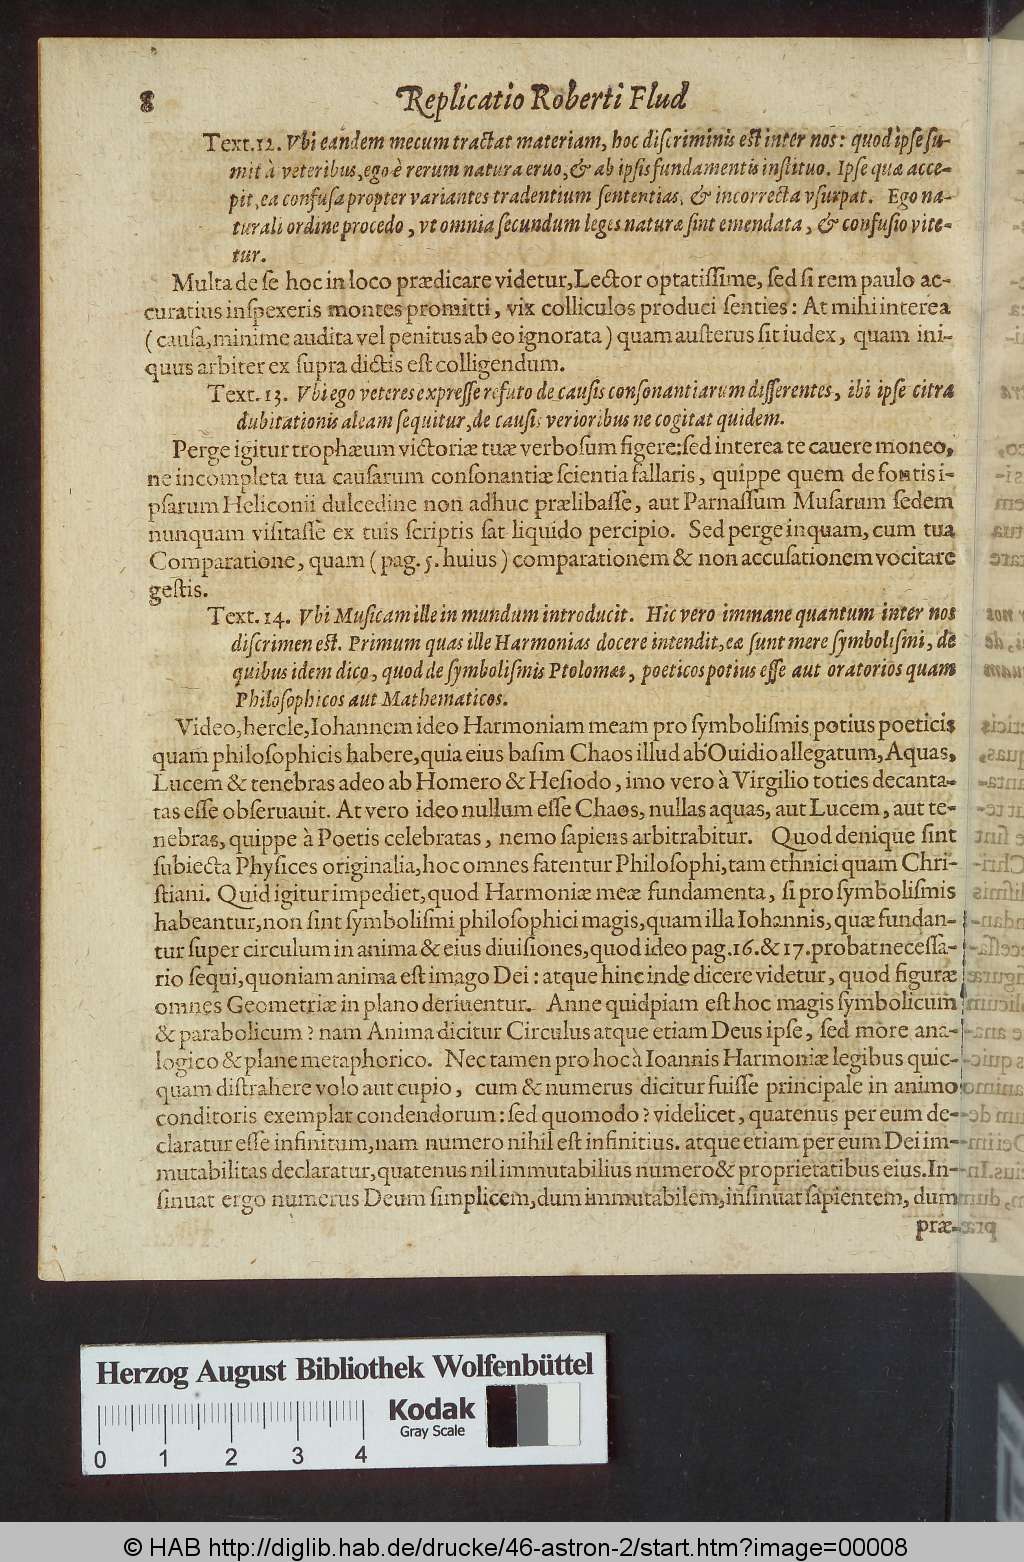 8 Replicatio Roberti Flud
Text. 12. Vbi eandem mecum tractat materiam, hoc discriminis est inter nos: quod ipse su-
mit à veteribus, ego è rerum natura eruo, & ab ipsis fundamentis instituo. Ipse quæ acce-
pit, ea confusa propter variantes tradentium sententias, & incorrecta vsurpat. Ego na-
turali ordine procedo, vt omnia secundum leges naturæ sint emendata, & confusio vite-
tur.
Multa de se hoc in loco prædicare videtur, Lector optatissime, sed si rem paulo ac-
curatius inspexeris montes promitti, vix colliculos produci senties: At mihi interea
(causa, minime audita vel penitus ab eo ignorata) quam austerus sit iudex, quam ini-
quus arbiter ex supra dictis est colligendum.
Text. 13. Vbi ego veteres expresse refuto de causis consonantiarum differentes, ibi ipse citra
dubitationis aleam sequitur, de causis verioribus ne cogitat quidem.
Perge igitur trophæum victoriæ tuæ verbosum figere: sed interea te cauere moneo,
ne incompleta tua causarum consonantiæ scientia fallaris, quippe quem de fontis i-
psarum Heliconii dulcedine non adhuc prælibasse, aut Parnassum Musarum sedem
nunquam visitasse ex tuis scriptis sat liquido percipio. Sed perge inquam, cum tua
Comparatione, quam (pag. 5. huius) comparationem & non accusationem vocitare
gestis.
Text. 14. Vbi Musicam ille in mundum introducit. Hic vero immane quantum inter nos
discrimen est. Primum quas ille Harmonias docere intendit, eæ sunt mere symbolismi, de
quibus idem dico, quod de symbolismis Ptolomæi, poeticos potius esse aut oratorios quam
Philosophicos aut Mathematicos.
Video, hercle, Iohannem ideo Harmoniam meam pro symbolismis potius poeticis
quam philosophicis habere, quia eius basim Chaos illud ab Ouidio allegatum, Aquas,
Lucem & tenebras adeo ab Homero & Hesiodo, imo vero à Virgilio toties decanta-
tas esse obseruauit. At vero ideo nullum esse Chaos, nullas aquas, aut Lucem, aut te-
nebras, quippe à Poetis celebratas, nemo sapiens arbitrabitur. Quod denique sint
subiecta Physices originalia, hoc omnes fatentur Philosophi, tam ethnici quam Chri-
stiani. Quid igitur impediet, quod Harmoniæ meæ fundamenta, si pro symbolismis
habeantur, non sint symbolismi philosophici magis, quam illa Iohannis, quæ fundan-
tur super circulum in anima & eius diuisiones, quod ideo pag. 16. & 17. probat necessa-
rio sequi, quoniam anima est imago Dei: atque hinc inde dicere videtur, quod figuræ
omnes Geometriæ in plano deriuentur. Anne quidpiam est hoc magis symbolicum
& parabolicum? nam Anima dicitur Circulus atque etiam Deus ipse, sed more ana-
logico & plane metaphorico. Nec tamen pro hoc à Ioannis Harmoniæ legibus quic-
quam distrahere volo aut cupio, cum & numerus dicitur fuisse principale in animo
conditoris exemplar condendorum: sed quomodo? videlicet, quatenus per eum de-
claratur esse infinitum, nam numero nihil est infinitius. atque etiam per eum Dei im-
mutabilitas declaratur, quatenus nil immutabilius numero & proprietatibus eius. In-
sinuat ergo numerus Deum simplicem, dum immutabilem, insinuat sapientem, dum
præ-
Herzog August Bibliothek Wolfenbüttel
Kodak
Gray Scale
0 1 2 3 4
© HAB http://diglib.hab.de/drucke/46-astron-2/start.htm?image=00008